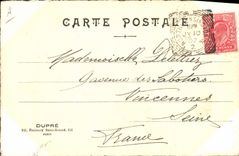 CARTE POSTALE
Mademoiselle Delettrez
9 avenue des Sabotiers
Vincennes
Seine
France
DUPRÉ
PARIS